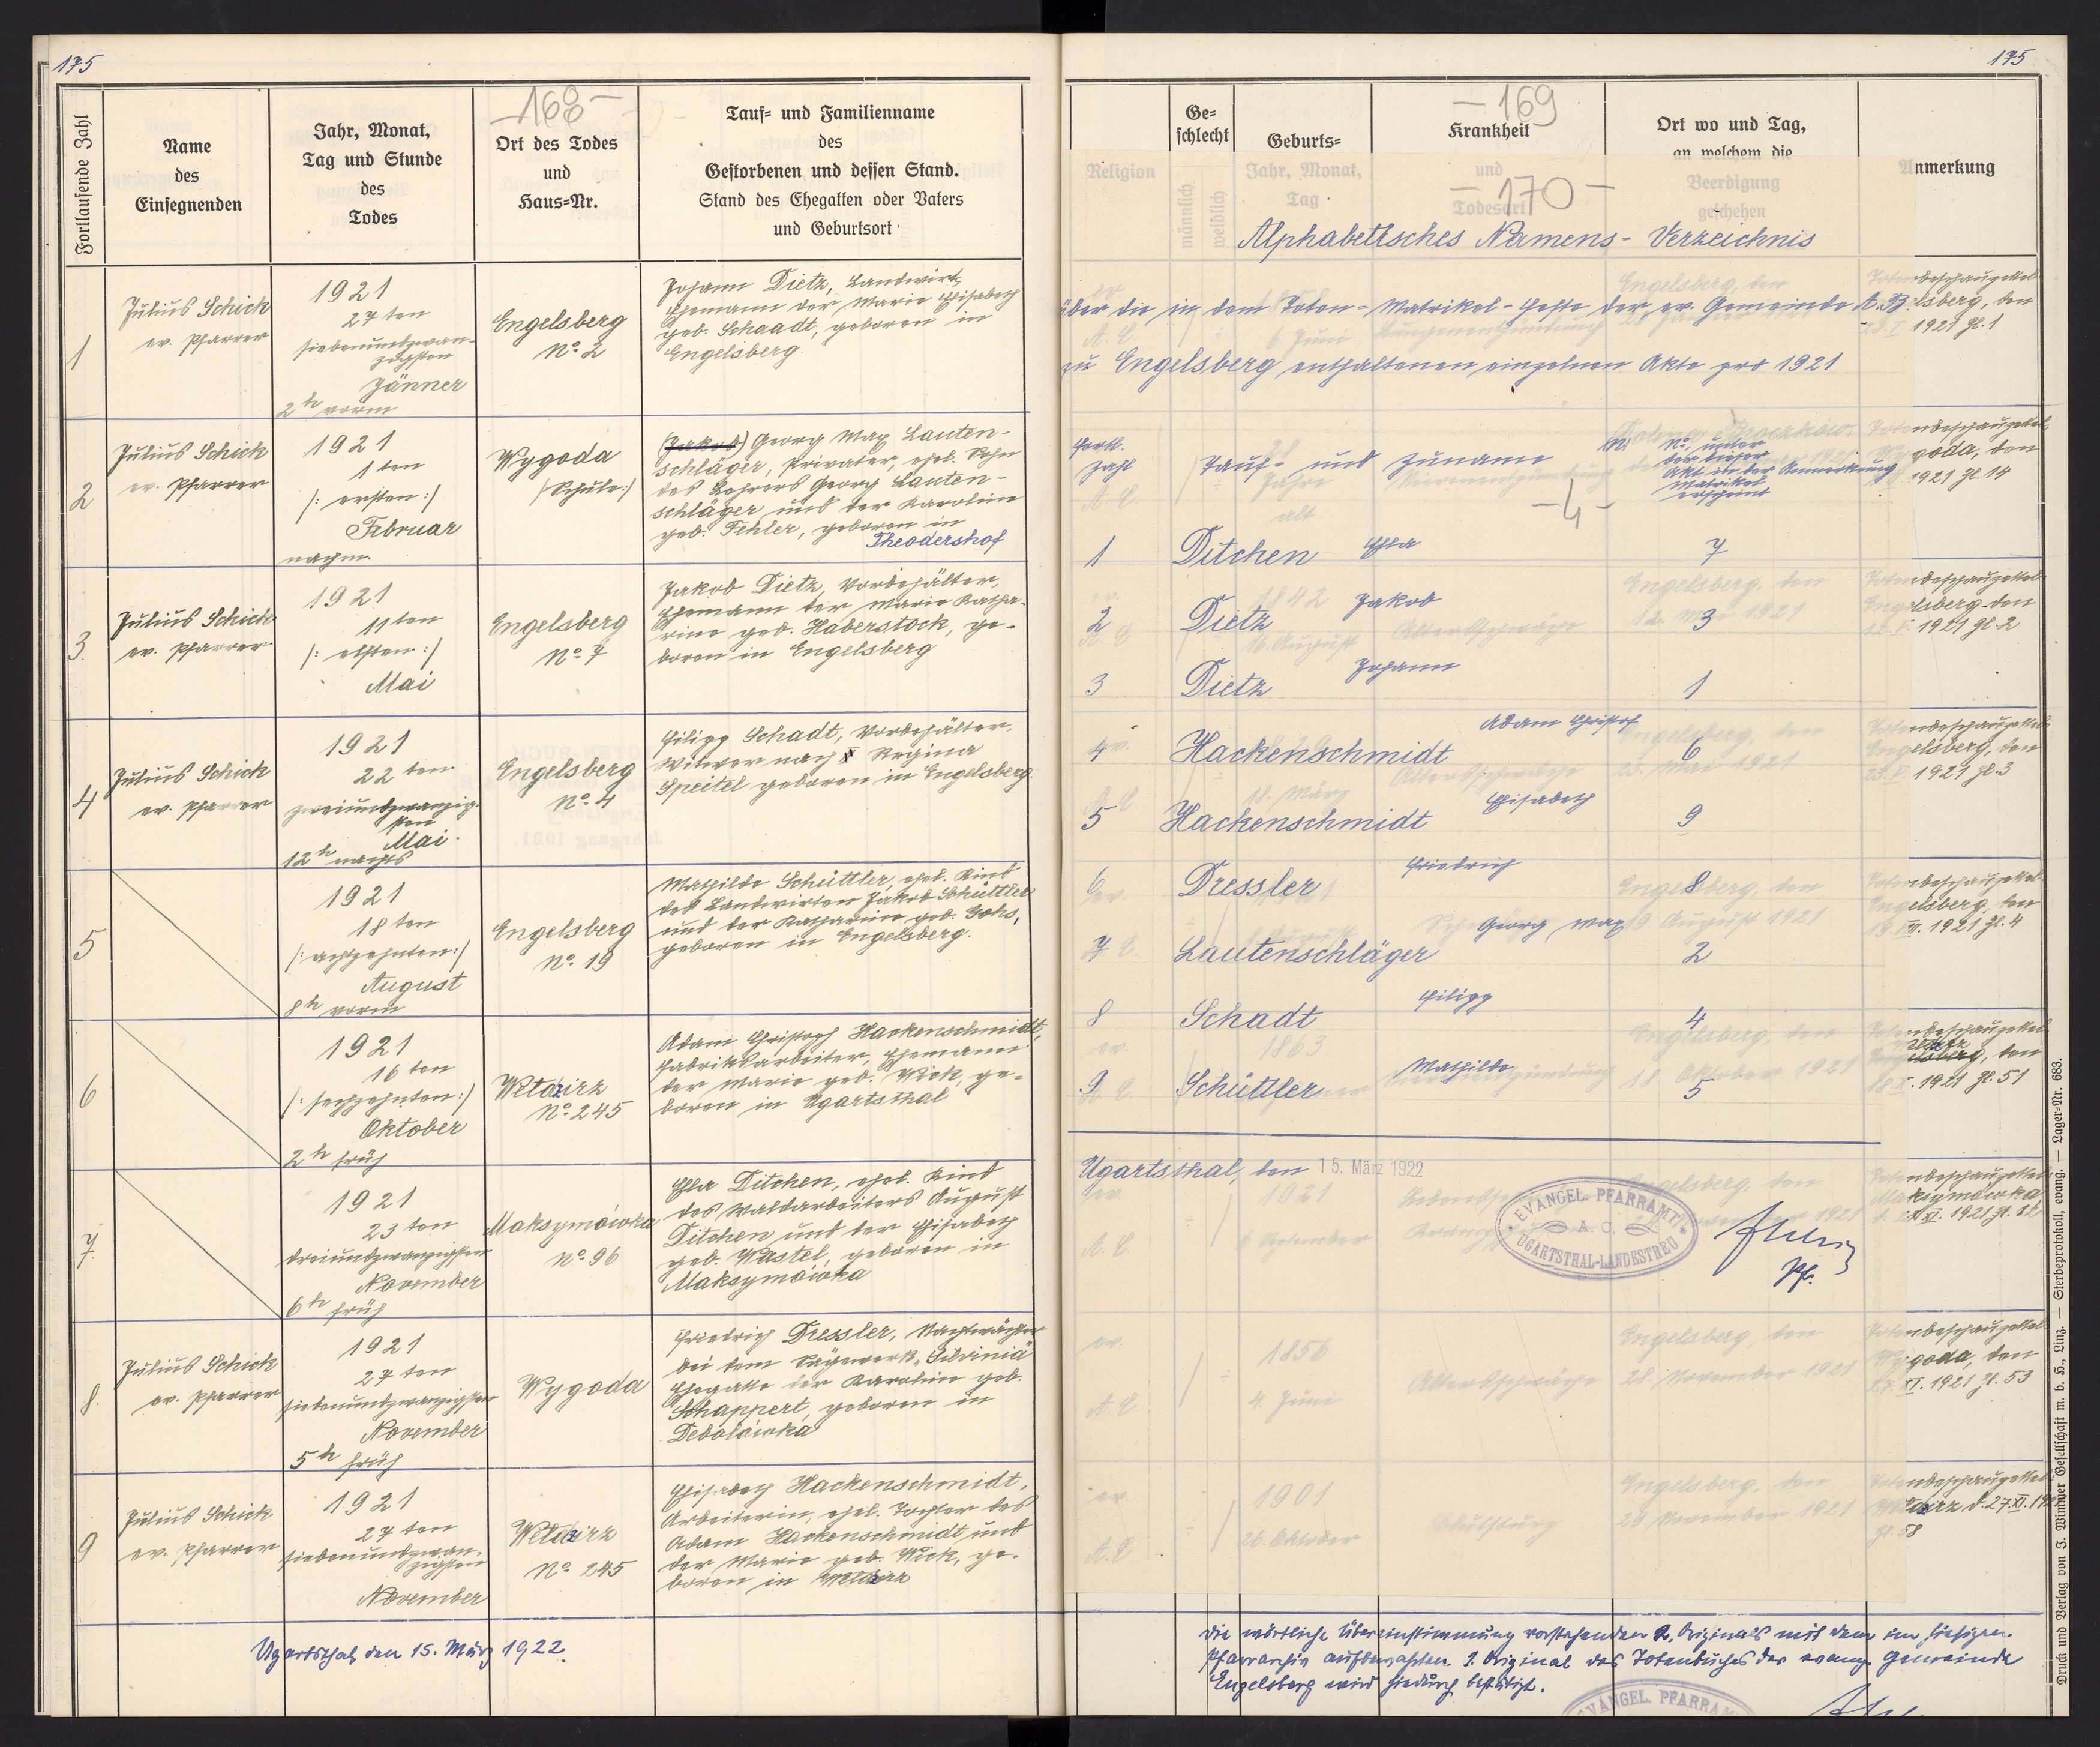 175
— 168 —
Fortlaufende Zahl
Name
des
Einsegnenden
Jahr, Monat,
Tag und Stunde
des
Todes
Ort des Todes
und
Haus=Nr.
Tauf= und Familienname
des
Gestorbenen und dessen Stand.
Stand des Ehegatten oder Vaters
und Geburtsort
1
Julius Schick
ev. Pfarrer
1921
27 ten
siebenundzwan-
zigsten
Jänner
2 h vorm
Engelsberg
No 2
Johann Dietz, Landwirt,
Ehemann der Marie Elisabeth
geb. Schaadt, geboren in
Engelsberg.
2
Julius Schick
ev. Pfarrer
1921
1 ten
/: ersten :/
Februar
nachm.
Wygoda
/Schule:/
(Jakob) Georg Max Lauten-
schläger, Privater, ehel. Sohn
des Lehrers Georg Lauten-
schläger und der Karoline
geb. Fehler, geboren in
Theodershof
3.
Julius Schick
ev. Pfarrer
1921
11 ten
/: elften :/
Mai
Engelsberg
No 7
Jakob Dietz, Vorbehälter,
Ehemann der Marie Katha-
rine geb. Haberstock, ge-
boren in Engelsberg
4
Julius Schick
ev. Pfarrer
1921
22 ten
zweiundzwanzig-
sten
Mai.
12 h nachts
Engelsberg
No 4
Filipp Schadt, Vorbehälter,
Witwer nach Regina
Speitel geboren in Engelsberg.
5
1921
18 ten
/: achtzehnten :/
August
8 h vorm
Engelsberg
No 19
Mathilde Schüttler, ehel. Kind
des Landwirten Jakob Schüttler
und der Katharine geb.
geboren in Engelsberg.
6
1921
16 ten
/: sechzehnten :/
Oktober
2 h früh
Wełdzirz
No 245
Adam Christoph Hackenschmidt,
Fabriksarbeiter, Ehemann
der Marie geb. Wick, ge-
boren in Ugartsthal
7.
1921
23 ten
dreiundzwanzigsten
November
6 h früh
Maksymówka
No 96
Ditchen, ehel. Kind
des Waldarbeiters August
Ditchen und der Elisabeth
geb. Wastel, geboren in
Maksymówka
8.
Julius Schick
ev. Pfarrer
1921
27 ten
siebenundzwanzigsten
November
5 h früh
Wygoda
Friedrich Dressler, Nachtwächter
bei dem Sägewerk „Silvinia"
Ehegatte der Karoline geb.
Schappert, geboren in
Debolówka
9
Julius Schick
ev. Pfarrer
1921
27 ten
siebenundzwan-
zigsten
November
Wełdzirz
No 245
Elisabeth Hackenschmidt,
Arbeiterin, ehel. Tochter des
Adam Hackenschmidt und
der Marie geb. Wick, ge-
boren in Wełdzirz
Ugartsthal, den 15. März 1922.
175
— 169
Religion
Ge-
schlecht
männlich
weiblich
Geburts=
Jahr, Monat,
Tag
Krankheit
und
Todesart
Ort wo und Tag,
an welchem die
Beerdigung
geschehen
Anmerkung
— 170 —
Alphabetisches Namens- Verzeichnis
über die in dem Toten-Matrikel-Hefte der ev. Gemeinde A. B.
zu Engelsberg enthaltenen einzelnen Akte pro 1921
Fortl.
Zahl
Tauf- und Zuname
No, unter
der dieser
Akt in der Anmerkung
Matrikel
erscheint
— 4 —
1 Ditchen 7
2 Dietz Jakob 3
3 Dietz Johann 1
4 Hackenschmidt Adam Christof 6
5 Hackenschmidt Elisabeth 9
6 Dressler Friedrich 8
7 Lautenschläger Georg Max 2
8 Schadt Filipp 4
9 Schüttler Mathilde 5
Ugartsthal, den 15. März 1922
EVANGEL. PFARRAMT
A. C.
UGARTSTHAL-LANDESTREU
Pf.
1921 Zl. 1
1921 Zl. 14
1921 Zl. 2
1921 Zl. 3
1921 Zl. 4
1921 Zl. 51
1921 Zl. 12
XI. 1921 Zl. 53
Zl. 58
Die wörtliche Übereinstimmung vorstehenden 2. Originals mit dem im hiesigen
Pfarrarchiv aufbewahrten 1. Original des Totenbuches der evang. Gemeinde
Engelsberg wird hiedurch bestätigt.
EVANGEL. PFARRAMT
Druck und Verlag von J. Wimmer Gesellschaft m. b. H., Linz. — Sterbeprotokoll, evang. — Lager=Nr. 683.